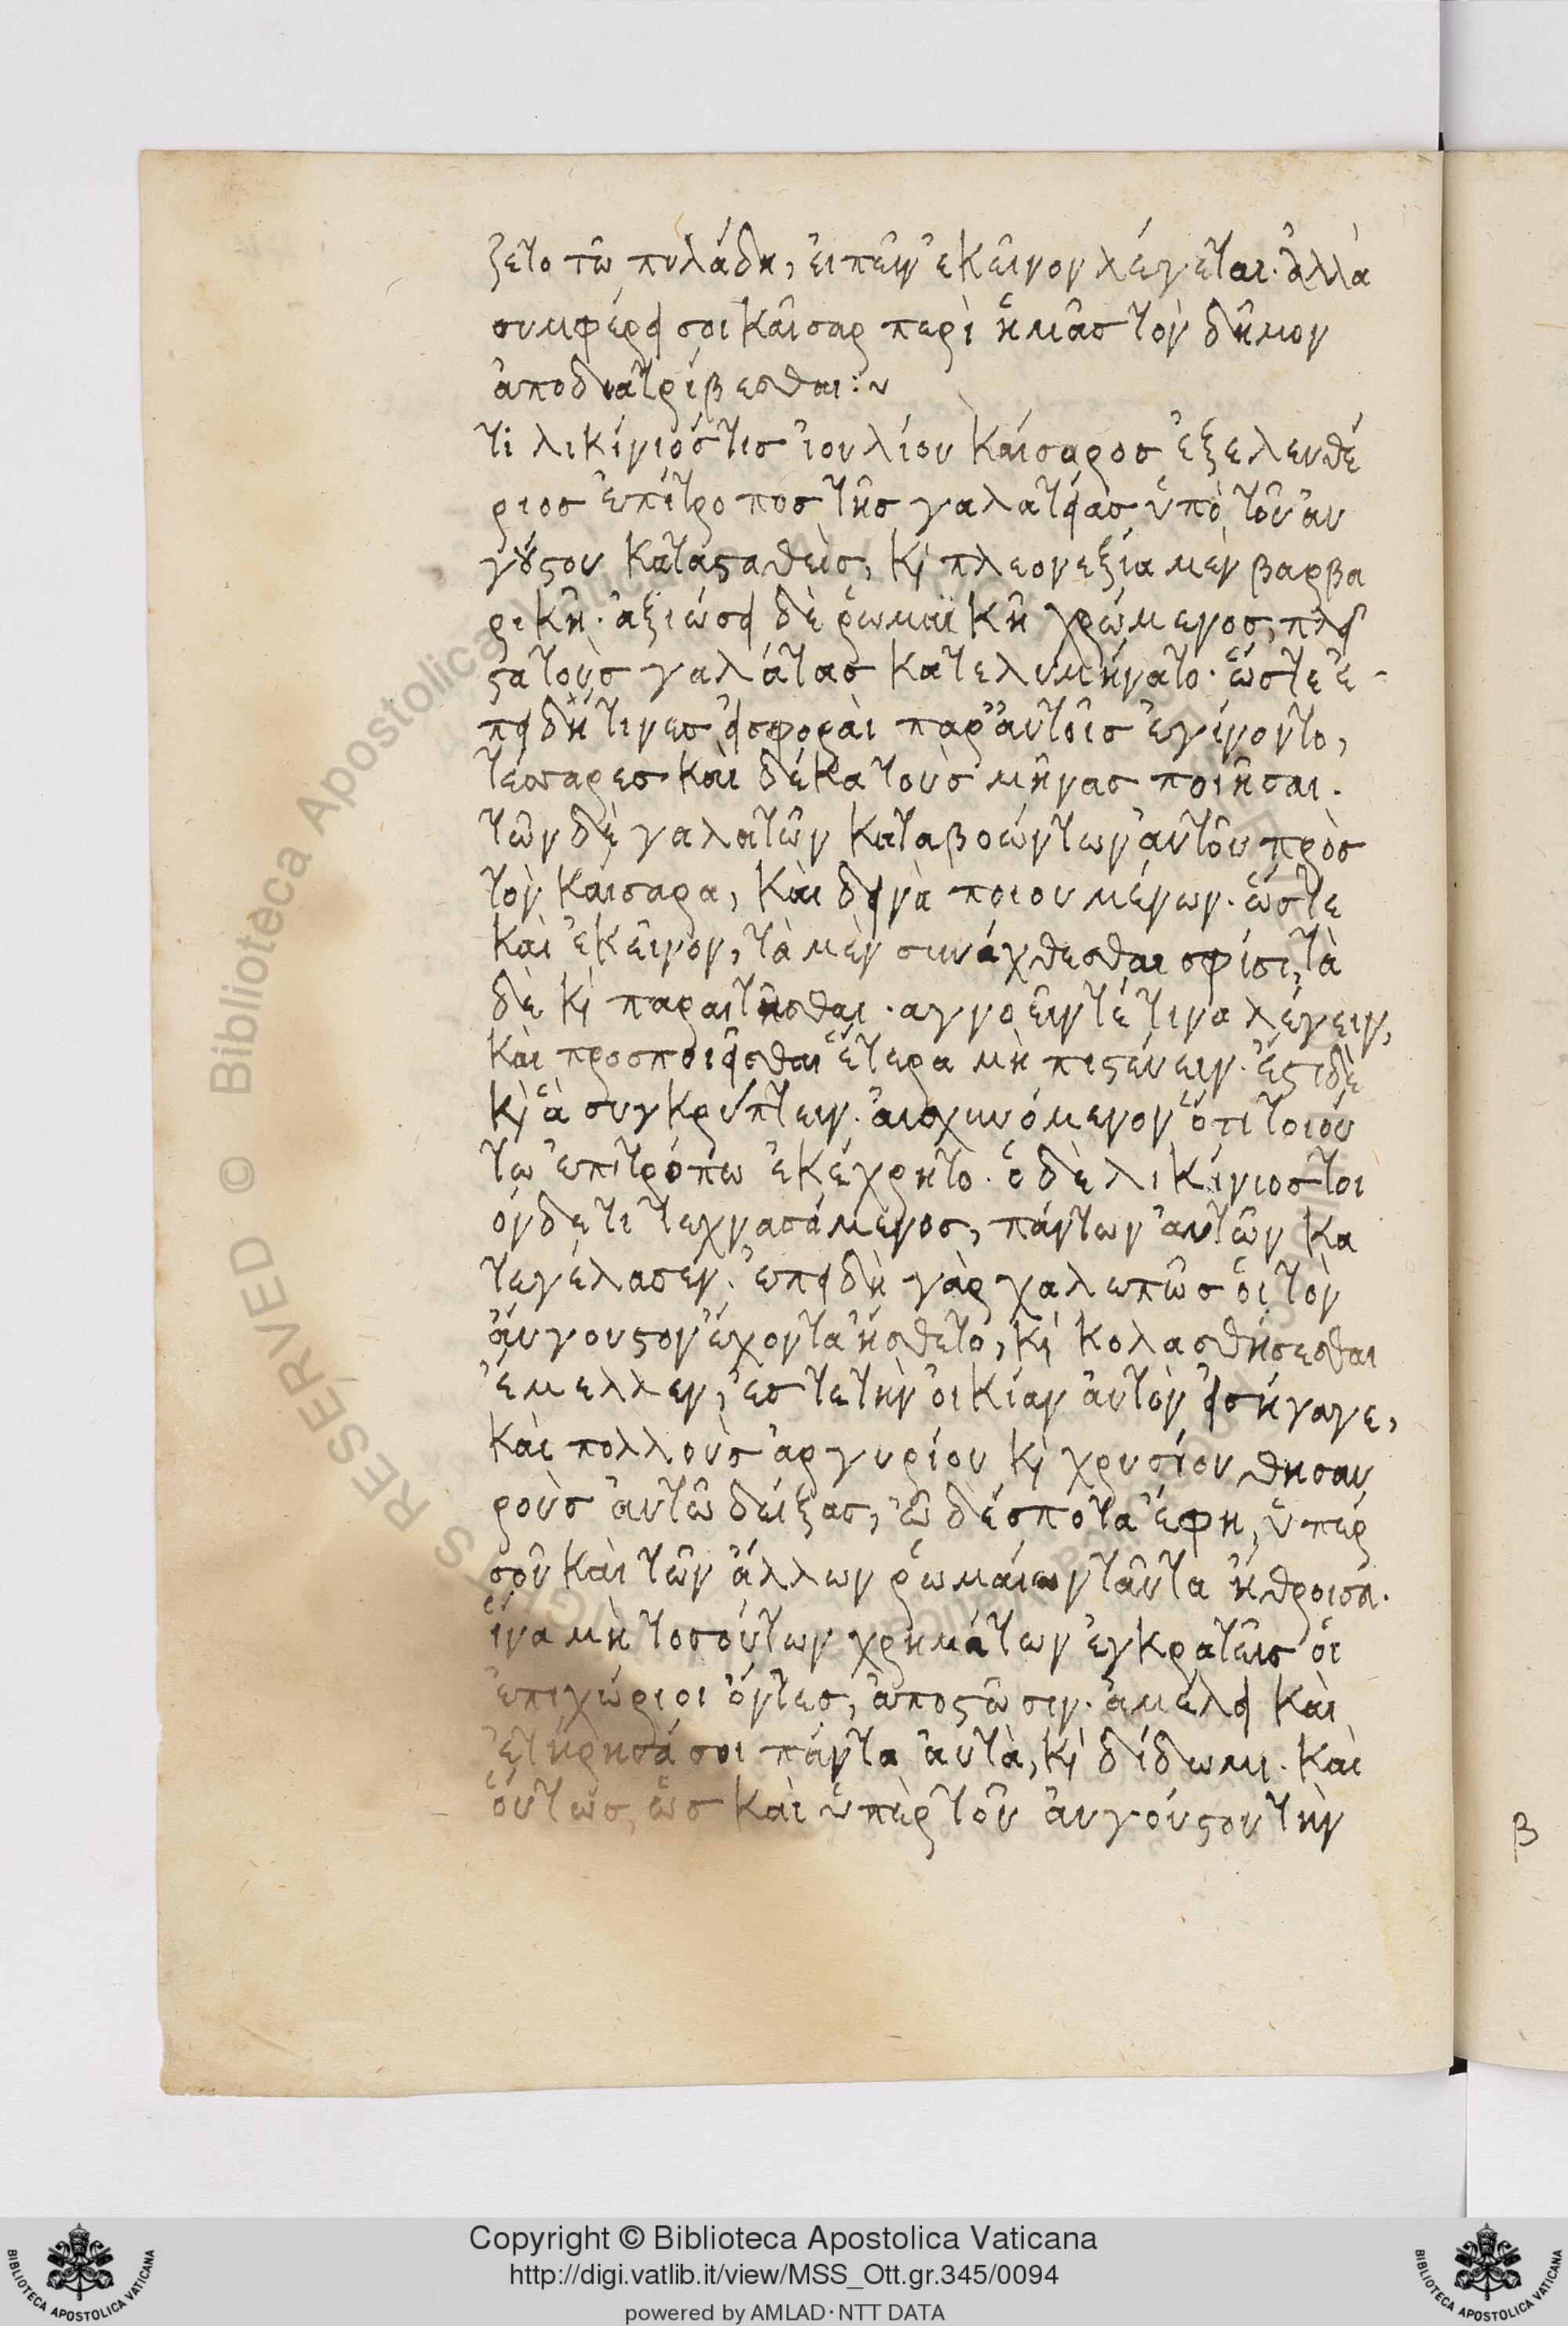 ζετο τῶ πυλάδη, ἐιπεῖν ἐκεῖνον λέγεται. ἀλλὰ
συμφέρει σοι καῖσαρ περὶ ἡμᾶσ τὸν δῆμον
ἀποδιατρίβεσθαι:~
τὶ λικίνιόστισ ἰουλίου καίσαροσ ἐξελευθέ
ριοσ ἐπίτροποσ τῆσ γαλατείασ ὑπὸ τοῦ ἀυ
γούςου καταςαθεὶσ, κὶ πλεονεξία μὲν βαρβα
ρικῆ. ἀξιώσει δὲ ῥωμαϊκῆ χρώμενοσ, πλεῖ
ςα τοὺσ γαλάτασ κατελυμήνατο. ὥστε ἐ-
πειδή τινεσ ἐισφοραὶ παρ' ἀυτοῖσ ἐγίνοντο,
τέσσαρεσ καὶ δέκα τοὺσ μῆνασ ποιῆσαι.
τῶν δὲ γαλατῶν καταβοώντων ἀυτοῦ πρὸσ
τὸν καίσαρα, καὶ δεινὰ ποιουμένων. ὥστε
καὶ ἐκεῖνον, τὰ μὲν συνάχθεσθαι σφίσι, τὰ
δὲ κὶ παραιτῆσθαι. αγνοεῖντέ τινα λέγειν,
καὶ προσποιεῖσθαι ἕτερα μὴ πιςεύειν. ἔςι δὲ
κὶ ἃ συγκρύπτειν. ἀισχυνόμενον ὅτι τοιού
τω ἐπιτρόπω ἐκέχρητο. ὁ δὲ λικίνιοσ τοι
όνδε τι τεχνασάμενοσ, πάντων ἀυτῶν κα
τεγέλασεν. ἐπειδὴ γὰρ χαλεπῶσ ὁι τὸν
ἄυγουςον ἔχοντα ἤσθετο, κὶ κολασθήσεσθαι
ἔμελλεν, ἐσ τε τὴν ὀικίαν ἀυτὸν ἐισήγαγε,
καὶ πολλοὺσ ἀργυρίου κὶ χρυσίου θησαυ
ροὺσ ἀυτῶ δείξασ, ὦ δέσποτα ἔφη, ὑπέρ
σοῦ καὶ τῶν ἄλλων ῥωμαίων ταῦτα ἤθροισα.
ἵνα μὴ τοσούτων χρημάτων ἐγκρατεῖσ ὁι
ἐπιχώριοι ὄντεσ, ἀποςῶσιν. ἀμέλει καὶ
ἐτήρησά σοι πάντα ἀυτὰ, κὶ δίδωμι. καὶ
ὁύτωσ, ὡσ καὶ ὑπὲρ τοῦ ἀυγούςου τὴν
β
© Biblioteca Apostolica Vaticana
RIGHTS RESERVED
Copyright © Biblioteca Apostolica Vaticana
http://digi.vatlib.it/view/MSS_Ott.gr.345/0094
powered by AMLAD·NTT DATA
BIBLIOTECA APOSTOLICA VATICANA
BIBLIOTECA APOSTOLICA VATICANA